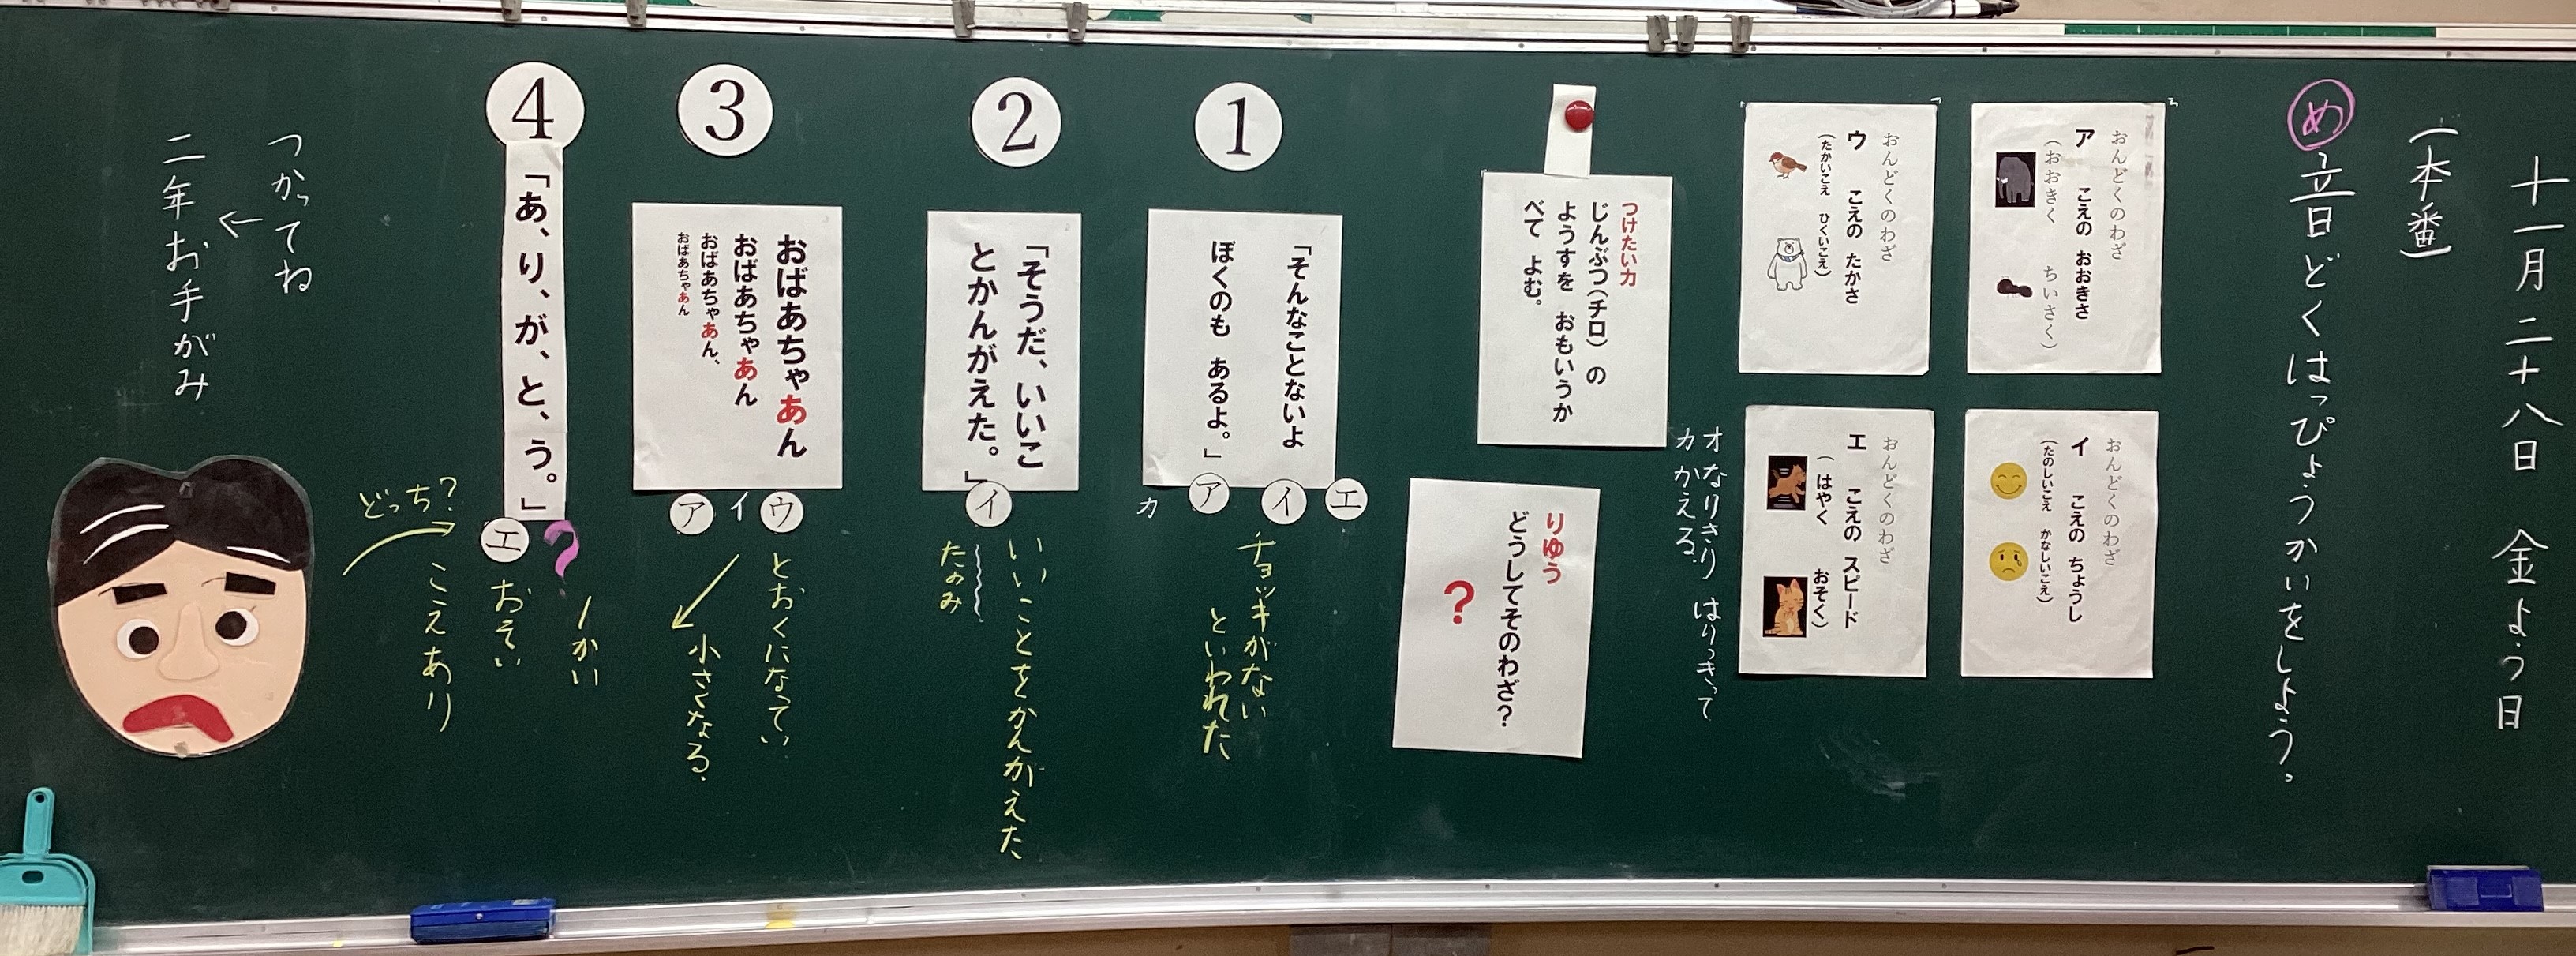 十一月二十八日 金よう日
(本番)
め 音どくはっぴょうかいをしよう。
おんどくのわざ
ア こえの おおきさ
(おおきく ちいさく)
おんどくのわざ
イ こえの ちょうし
(たのしいこえ かなしいこえ)
おんどくのわざ
ウ こえの たかさ
(たかいこえ ひくいこえ)
おんどくのわざ
エ こえの スピード
(はやく おそく)
オ なりきり はりきって
カ かえる
つけたい力
じんぶつ(チロ)の
ようすを おもいうか
べて よむ。
りゆう
どうしてそのわざ?
?
①
「そんなことないよ
ぼくのも あるよ。」
エ
イ
ア
カ
チョッキがない
といわれた
②
「そうだ、いいこ
とかんがえた。」
イ
いいことをかんがえた
たのみ
③
おばあちゃあん
おばあちゃあん
おばあちゃあん、
おばあちゃあん
ウ
イ
ア
とおくになってい
小さくなる.
④
「あ、り、が、と、う。」
?
エ
1かい
おそい
こえあり
どっち?
つかってね
←
二年お手がみ